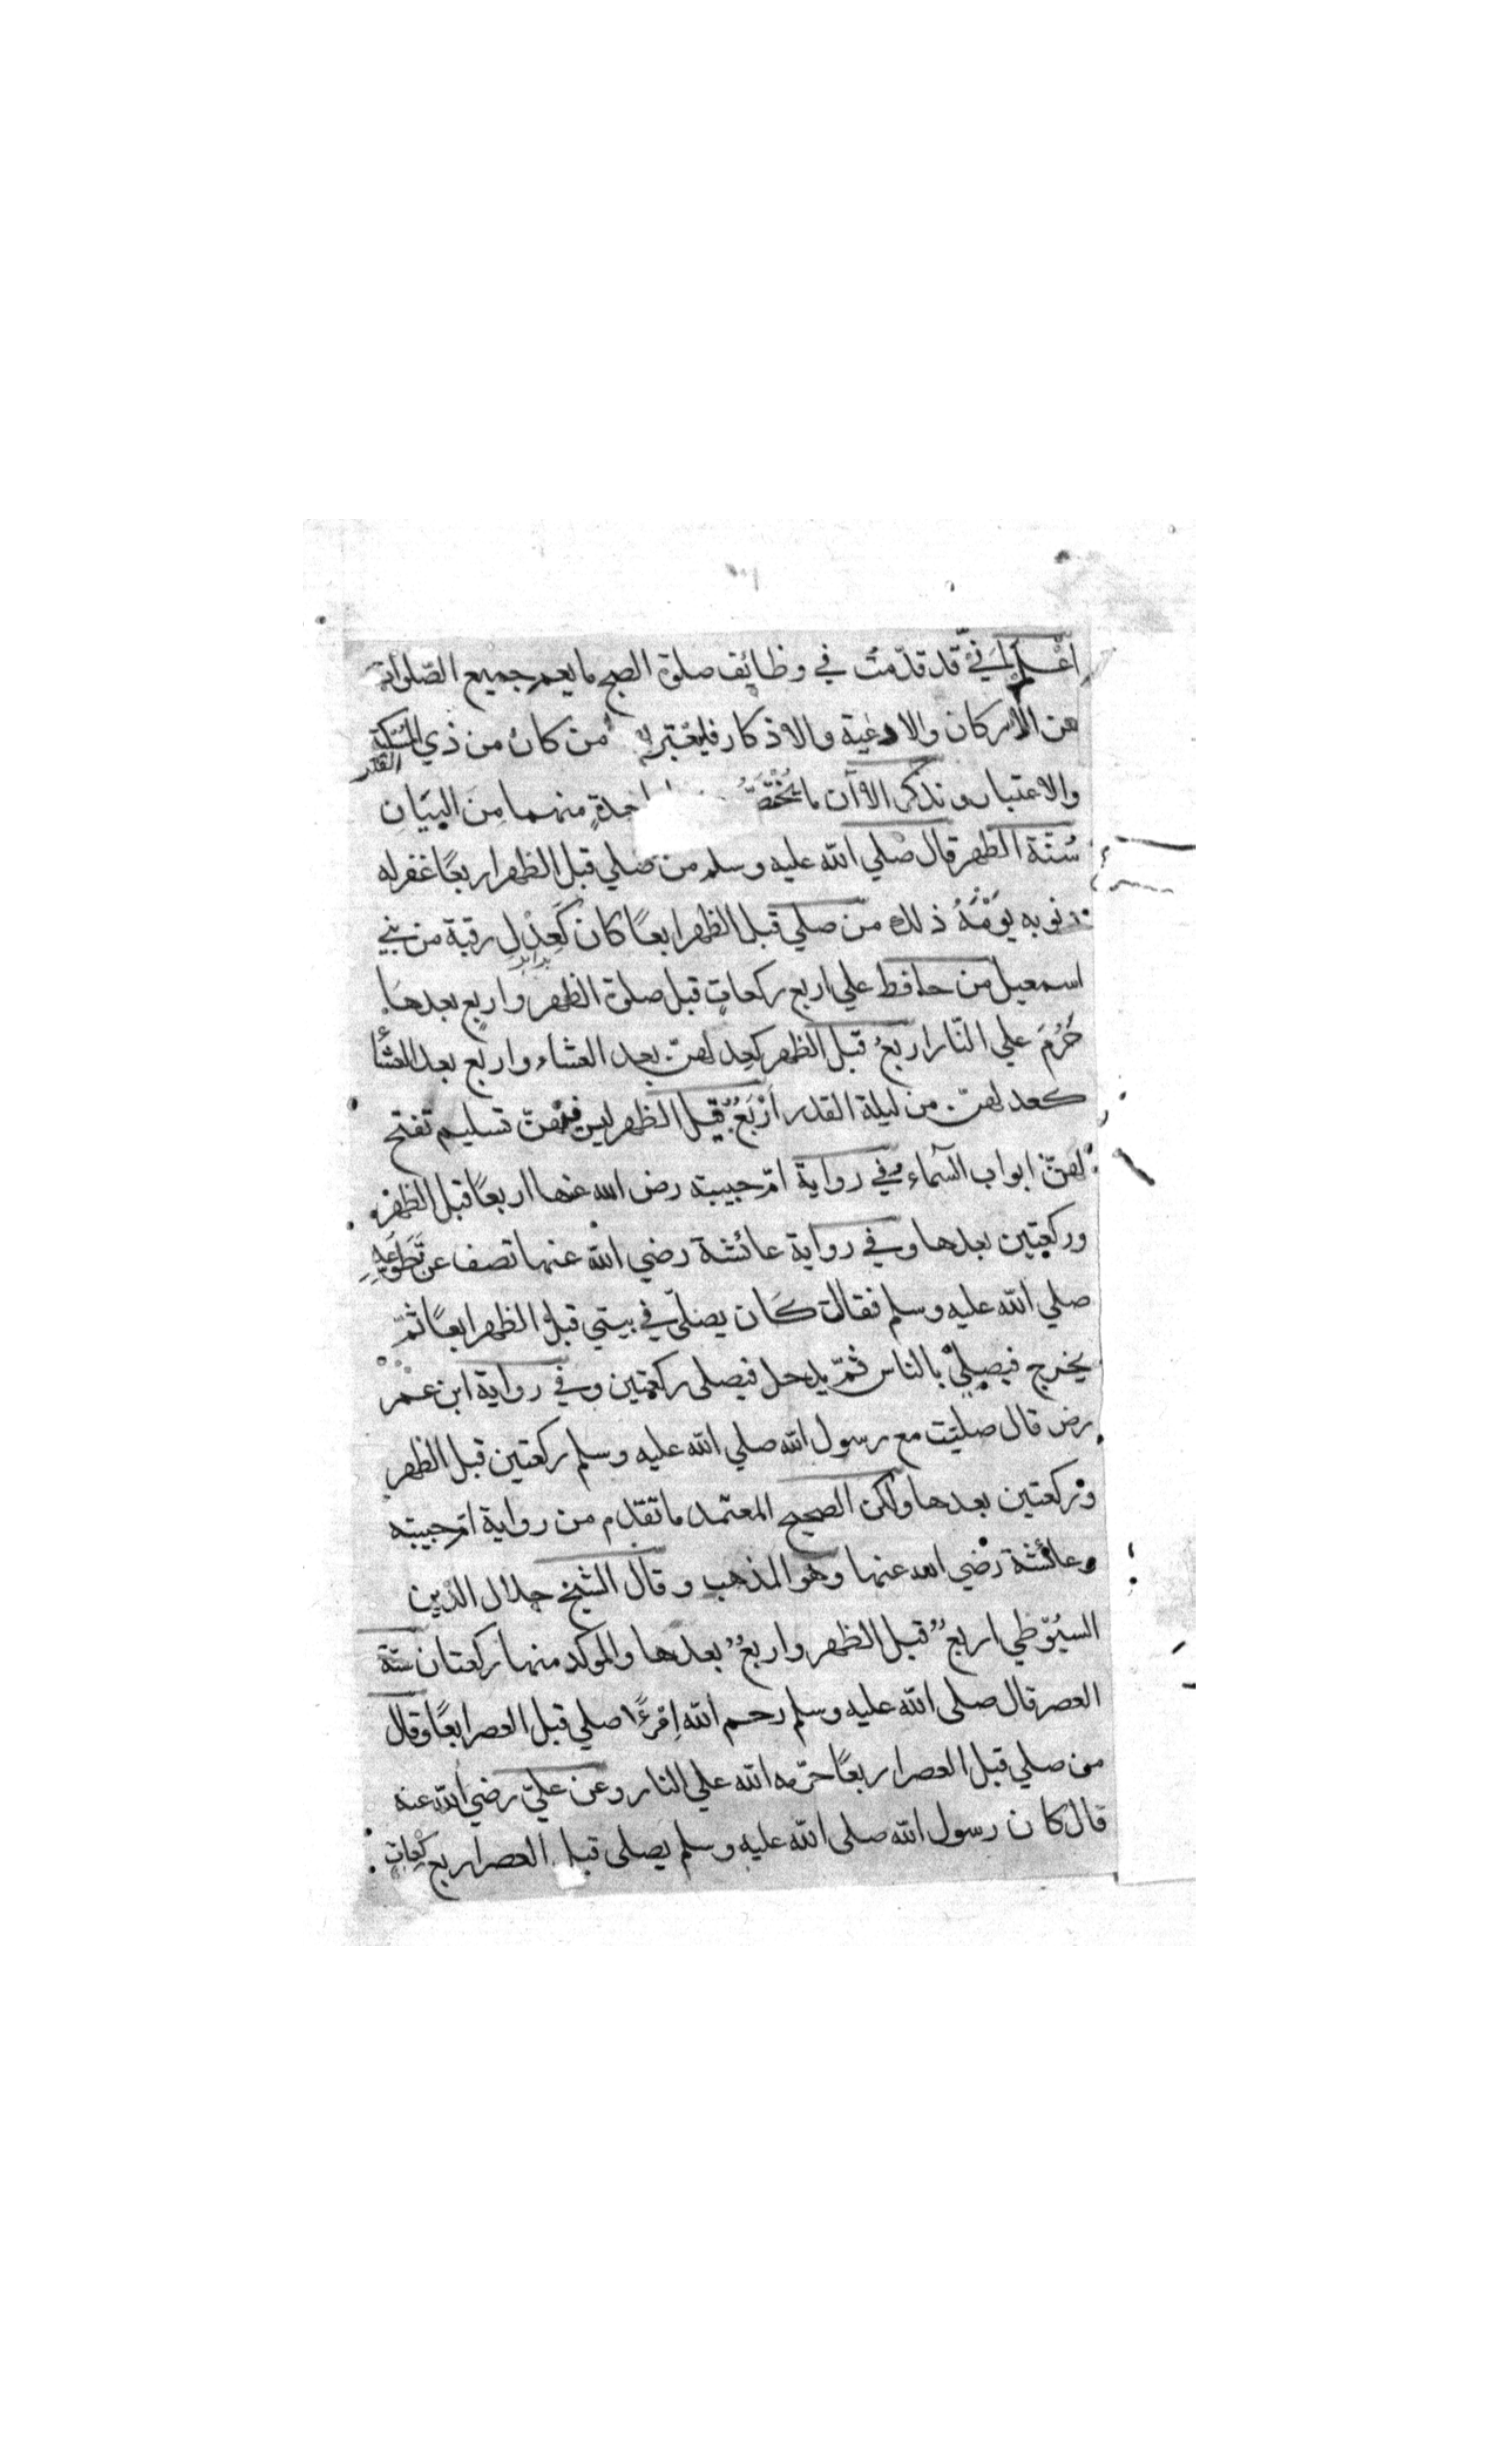 اعْلَم اني قد قدّمت في وظائف صلوة الصبح ما يعم جميع الصّلوات
من الاركان والادعية والاذكار فليعتبر من كان من ذي
والاعتبار ونذكر الاآن ما يُخْتَصُّ منهما مِنَ البَيَانِ
سُنّة الظهر قال صلي الله عليه وسلم من صلي قبل الظهر اربعًا غفر له
ذنوبه يَوْمَهُ ذلك من صلي قبل الظهر ابعًا كان كَعِدْلِ رقبة من بني
اسمعيل من حافط علي اربع ركعاتٍ قبل صلوة الظهر واربعٍ بعدها
حُرِمَ علي النّار اربعُ قبل الظهر كعدلهنّ بعد العشاء واربع بعد العشأ
كعدلهنّ من ليلة القدر اَرْبَعُ قبل الظهر ليس فيهنّ تسليم تفتح
لهنّ ابواب السّماء وفي رواية امّ حبيبته رض الله عنها اربعًا قبل الظهر
وركعتين بعدها وفي رواية عائشة رضي الله عنها تصف عن تَطَوّعِهِ
صلي الله عليه وسلم فقالت كَان يصلّي في بيتي قبل الظهر ابعًا ثمّ
يخرج فيصلي بالناس ثمّ يدحل فيصلى ركعتين وفي رواية ابن عمر
رض قال صليت مع رسول الله صلي الله عليه وسلم ركعتين قبل الظهر
وركعتين بعدها ولكن الصحيح المعتمد ما تقدم من رواية امّ حبيبته
وعائشة رضي الله عنها وهو المذهب وقال الشيخ جلال الدّين
السيُوطي اربعٌ قبل الظهر واربعٌ بعدها والموكد منها ركعتان سنّة
العصر قال صلى الله عليه وسلم رحم الله اِمْرءًا صلي قبل العصر ابعًا وقال
من صلي قبل العصر اربعًا حرّمه الله علي النار وعن عليّ رضي الله عنه
قال كان رسول الله صلى الله عليه وسلم يصلى قبل العصر اربع ركعاتٍ